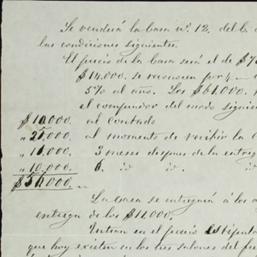 Se venderá la Casa nº. 12, del C.
las condiciones siguientes.
El precio de la Casa será el de $7
$14,000. se reconocen por 4
5% al año. Los $61.000.
el comprador del modo siguien
$10,000. al contado
" 25,000. al momento de recibir la C
" 16,000. 3 meses despues de la entreg
" 10,000. 6. id id
La casa se entregará á los
entrega de los $11.000.
Entran en el precio Estipula
que hoy existen en los tres salones del